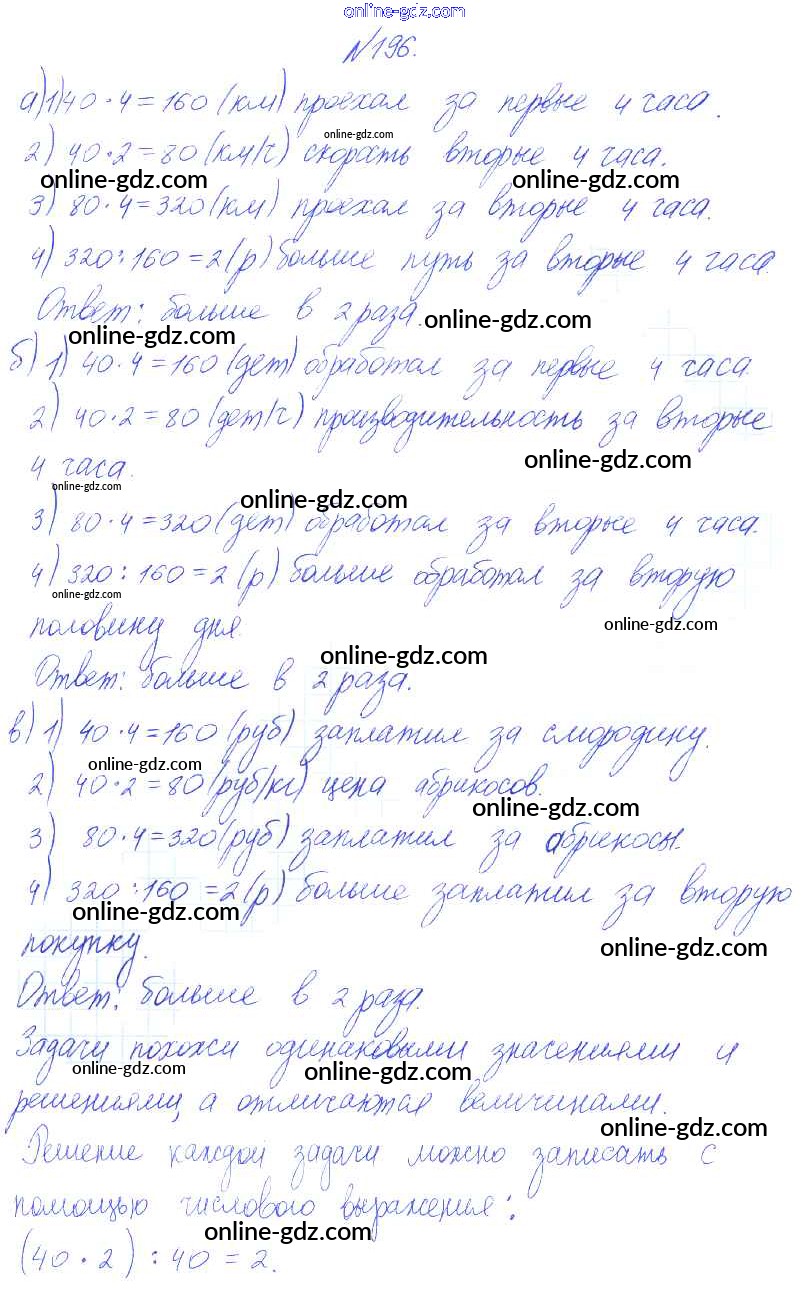 online-gdz.com
№196.
а)1)40·4=160(км) проехал за первые 4 часа.
online-gdz.com
2) 40·2=80(км/ч) скорость вторые 4 часа.
online-gdz.com online-gdz.com
3) 80·4=320(км) проехал за вторые 4 часа.
4) 320:160=2(р) больше путь за вторые 4 часа.
Ответ: больше в 2 раза.
online-gdz.com online-gdz.com
б) 1) 40·4=160(дет) обработал за первые 4 часа
2) 40·2=80(дет/ч) производительность за вторые
4 часа.
online-gdz.com
online-gdz.com online-gdz.com
3) 80·4=320(дет) обработал за вторые 4 часа.
4) 320:160=2(р) больше обработал за вторую
online-gdz.com
половину дня.
online-gdz.com
online-gdz.com
Ответ: больше в 2 раза.
в) 1) 40·4=160(руб) заплатил за смородину.
online-gdz.com
2) 40·2=80(руб/кг) цена абрикосов.
online-gdz.com
3) 80·4=320(руб) заплатил за абрикосы.
4) 320:160=2(р) больше заплатил за вторую
online-gdz.com
покупку.
online-gdz.com
Ответ: больше в 2 раза.
Задачи похожи одинаковыми значениями и
online-gdz.com online-gdz.com
решениями, а отличаются величинами.
online-gdz.com
Решение каждой задачи можно записать с
помощью числового выражения:
online-gdz.com
(40·2):40=2.